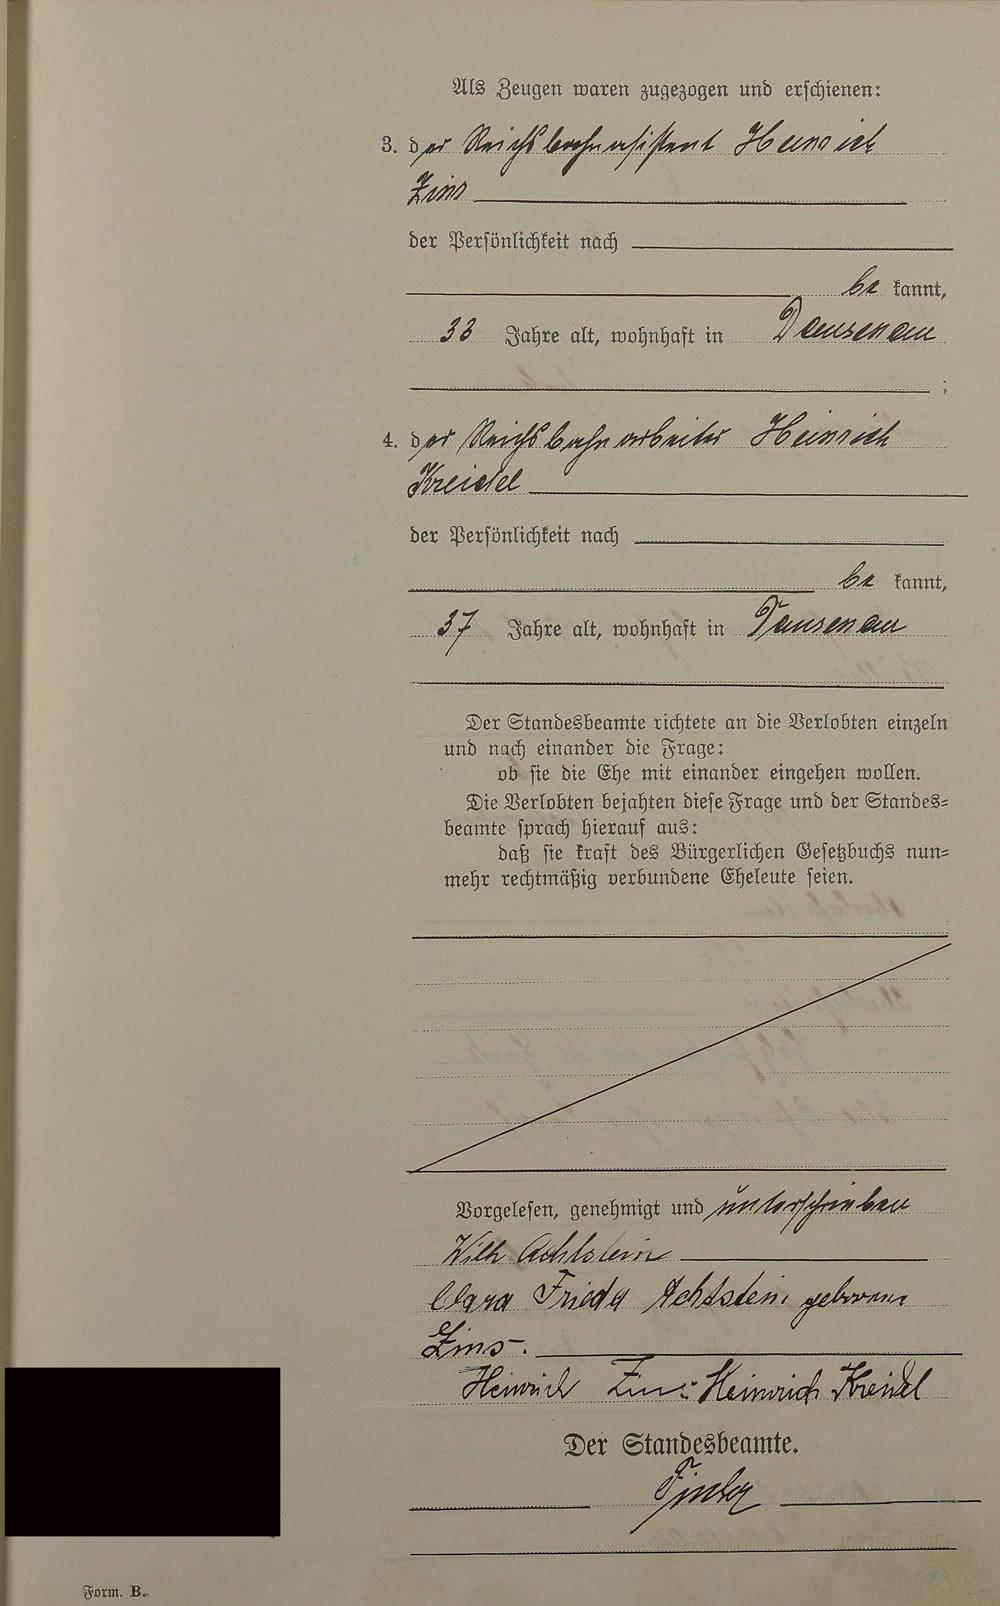 Als Zeugen waren zugezogen und erschienen:
3. der Reichsbahnassistent Heinrich
Zins
der Persönlichkeit nach
be kannt,
33 Jahre alt, wohnhaft in Dausenau
;
4. der Reichsbahnarbeiter Heinrich
Kreidel
der Persönlichkeit nach
be kannt,
37 Jahre alt, wohnhaft in Dausenau
Der Standesbeamte richtete an die Verlobten einzeln
und nach einander die Frage:
ob sie die Ehe mit einander eingehen wollen.
Die Verlobten bejahten diese Frage und der Standes=
beamte sprach hierauf aus:
daß sie kraft des Bürgerlichen Gesetzbuchs nun=
mehr rechtmäßig verbundene Eheleute seien.
Vorgelesen, genehmigt und unterschrieben
Wilh Achtstein
Clara Frieda Achtstein geborene
Zins.
Heinrich Zins Heinrich Kreidel
Der Standesbeamte.
Form. B.